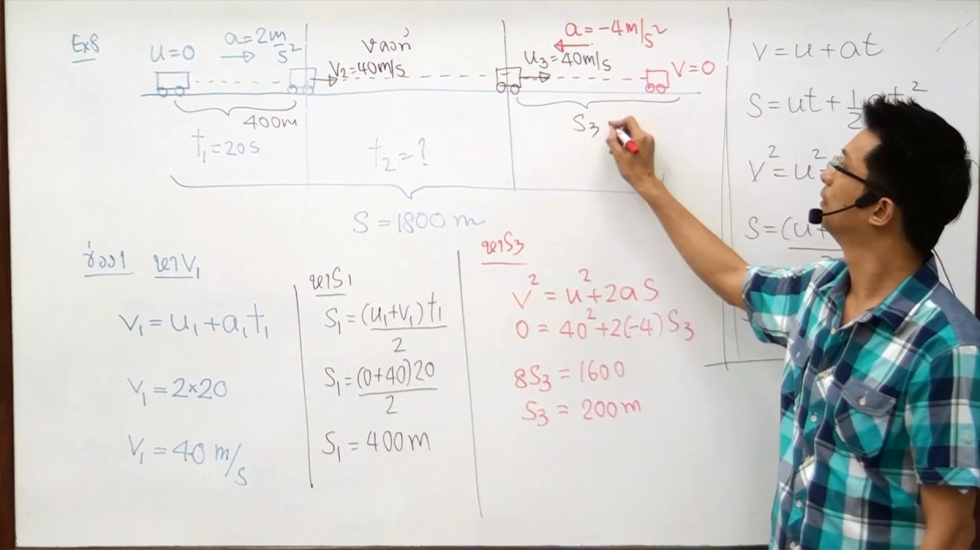 Ex8
u=0
a=2m/s²
V₂=40m/s
a=-4m/s²
u₃=40m/s
V=0
400m
t₁=20s
t₂=?
S₃
S=1800m
หาV₁
V₁=u₁+a₁t₁
V₁=2×20
V₁=40 m/s
หาS₁
S₁=(u₁+V₁)t₁/2
S₁=(0+40)20/2
S₁=400m
หาS₃
V²=u²+2aS
0=40²+2(-4)S₃
8S₃=1600
S₃=200m
V=u+at
S=ut+½
V²=u²
S=(u+